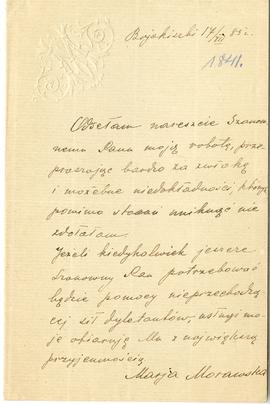 17/XII 85 r.
1841.
Odsełam nareszcie Szanow-
nemu Panu moją robotę, prze-
praszając bardzo za zwłokę
i możebne niedokładności, których
pomimo starań uniknąć nie
zdołałam.
Jeżeli kiedykolwiek jeszcze
Szanowny Pan potrzebować
będzie pomocy nieprzechodzą-
cej sił dyletantów, usługi mo-
je ofiaruję Mu z największą
przyjemnością.
Marja Morawska